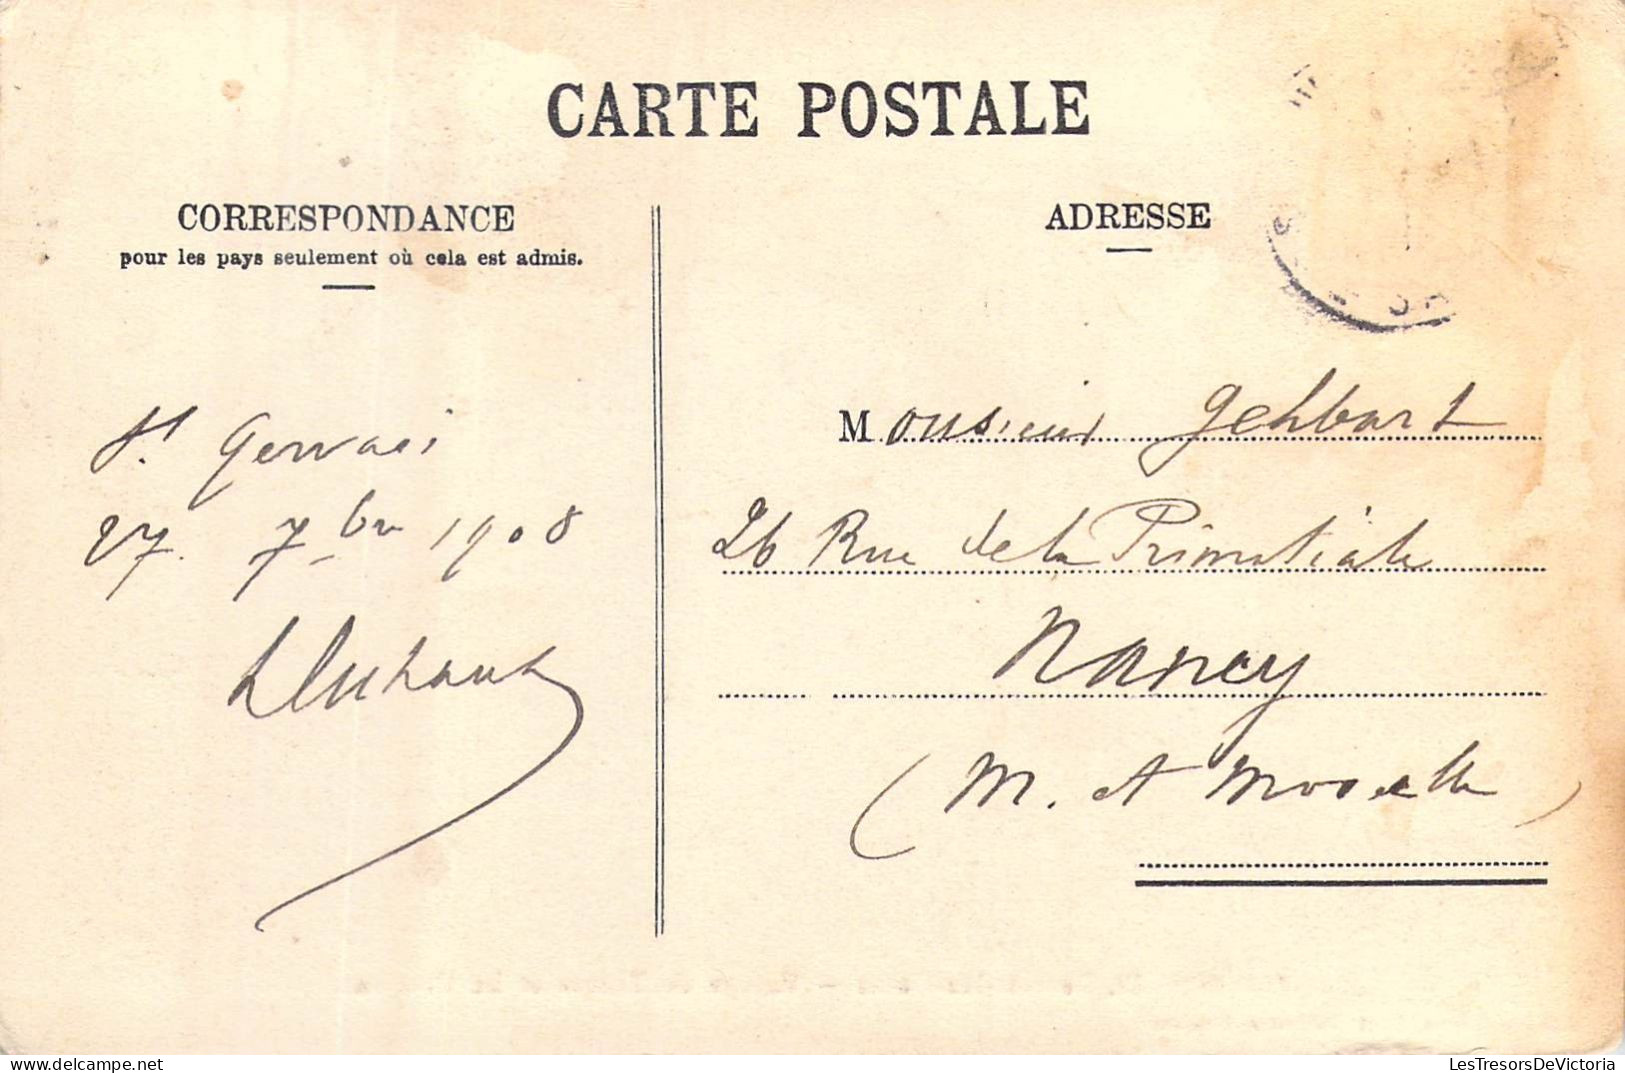 CARTE POSTALE
CORRESPONDANCE
pour les pays seulement où cela est admis.
St Gervais
27. 7bre 1908
ADRESSE
Monsieur Gehbart
26 Rue de la Primatiale
Nancy
(M. et Moselle)
LesTresorsDeVictoria